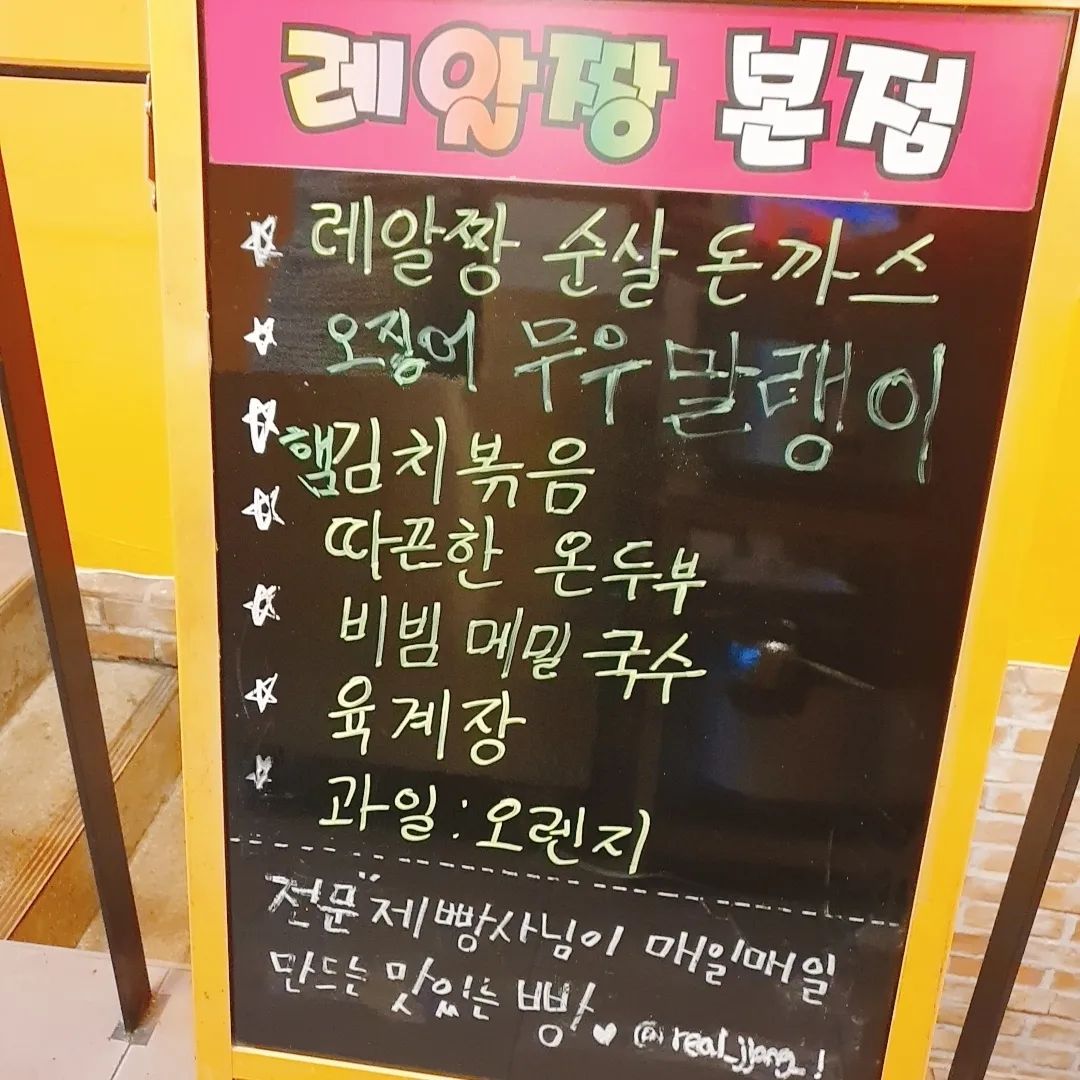 레알짱 본점
레알짱 순살 돈까스
오징어 무우말랭이
햄김치볶음
따끈한 온두부
비빔 메밀 국수
육계장
과일 : 오렌지
전문 제빵사님이 매일매일
만드는 맛있는 빵♥ @real_jjang_!